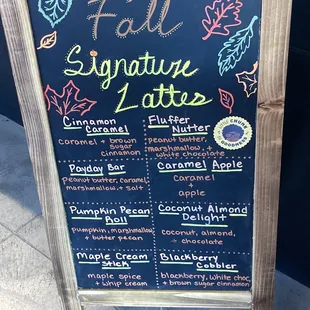 Fall
Signature
Lattes
Cinnamon
Caramel
caramel + brown
sugar
cinnamon
Fluffer
Nutter
peanut butter,
marshmallow, +
white chocolate
Payday Bar
peanut butter, caramel,
marshmallow, + salt
Caramel Apple
Caramel
+
apple
Pumpkin Pecan
Roll
pumpkin, marshmallow,
+ butter pecan
Coconut Almond
Delight
coconut, almond,
+ chocolate
Maple Cream
Stick
maple spice
+ whip cream
Blackberry
Cobbler
blackberry, white choc,
+ brown sugar cinnamon